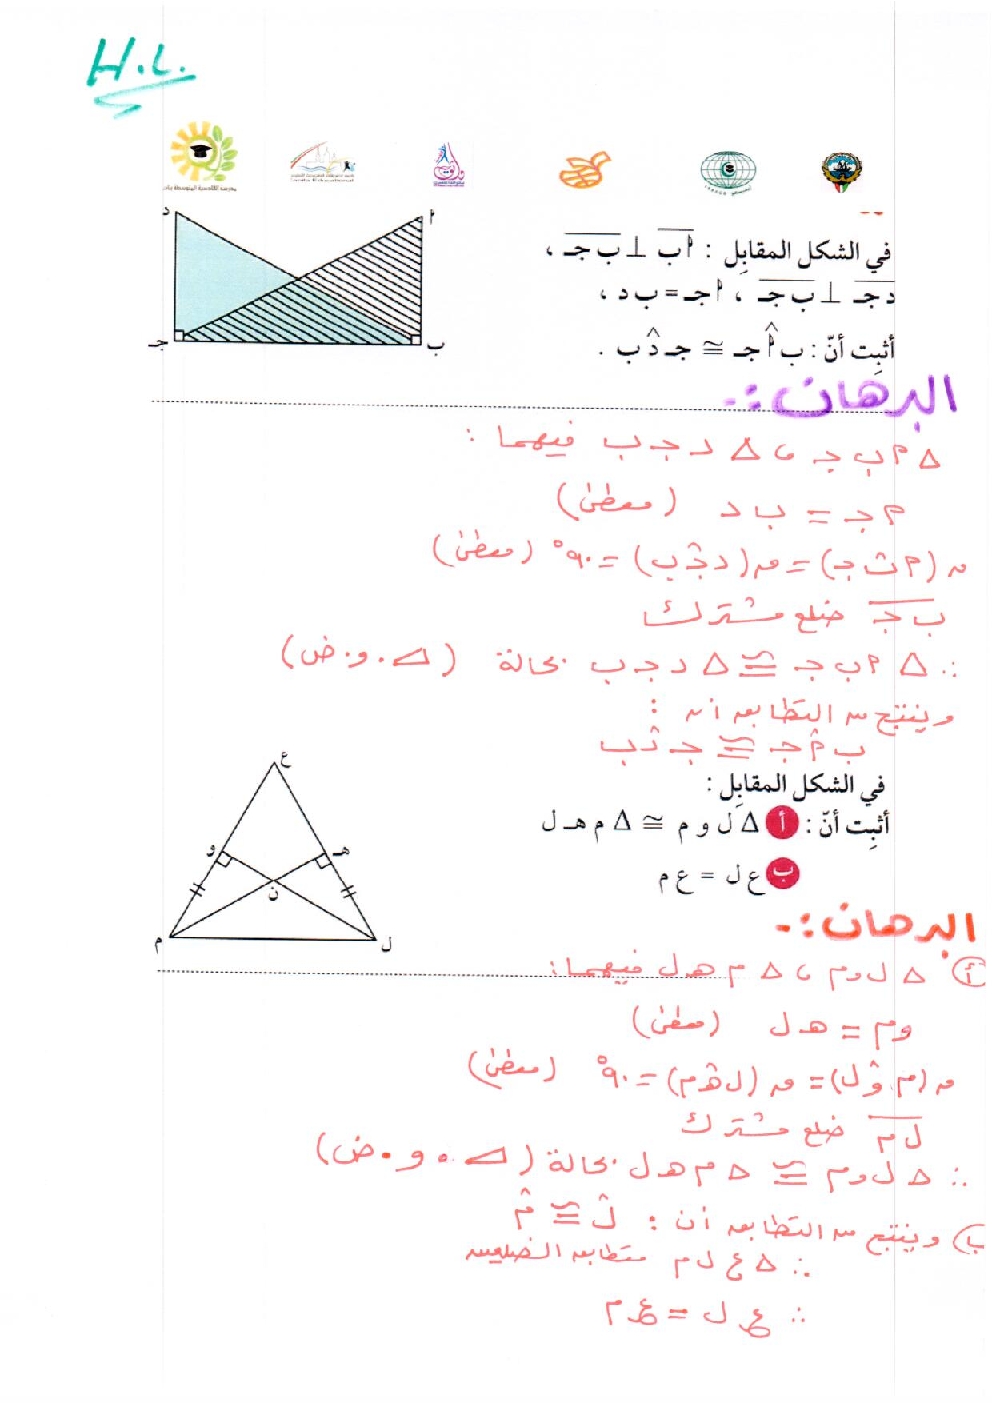 H.L.
في الشكل المقابِل : أب ⊥ ب جـ ،
د جـ ⊥ ب جـ ، أ جـ = ب د ،
أثبِت أنّ : ب أ̂ جـ ≅ جـ د̂ ب .
د
أ
جـ
ب
البرهان :-
△ م ب جـ ، △ د جـ ب فيهما :
م جـ = ب د (معطى)
ق (م ب̂ جـ) = ق (د جـ̂ ب) = ٩٠° (معطى)
ب جـ ضلع مشترك
∴ △ م ب جـ ≅ △ د جـ ب بحالة (⊿ . و . ض)
وينتج من التطابق أن :
ب م̂ جـ ≅ جـ د̂ ب
في الشكل المقابِل :
أثبِت أنّ : أ △ ل و م ≅ △ م هـ ل
ب ع ل = ع م
ع
و
هـ
ن
م
ل
البرهان :-
أ) △ ل و م ، △ م هـ ل فيهما :
و م = هـ ل (معطى)
ق (م و̂ ل) = ق (ل هـ̂ م) = ٩٠° (معطى)
ل م ضلع مشترك
∴ △ ل و م ≅ △ م هـ ل بحالة (⊿ . و . ض)
ب) وينتج من التطابق أن : ل̂ ≅ م̂
∴ △ ع ل م متطابق الضلعين
∴ ع ل = ع م